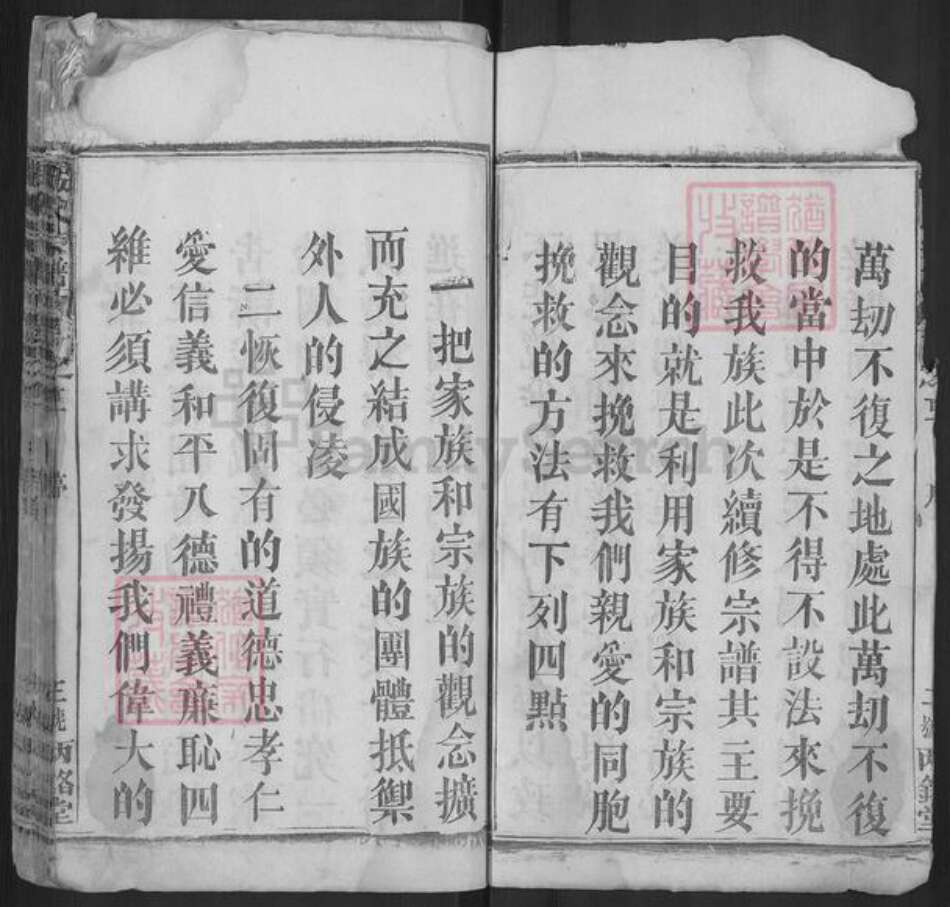 萬刼不復之地處此萬刼不復
的當中於是不得不設法來挽
救我族此次續修宗譜其主要
目的就是利用家族和宗族的
觀念來挽救我們親愛的同胞
挽救的方法有下列四點
一把家族和宗族的觀念擴
而充之結成國族的團體抵禦
外人的侵凌
二恢復固有的道德忠孝仁
愛信義和平八德禮義廉恥四
維必須講求發揚我們偉大的